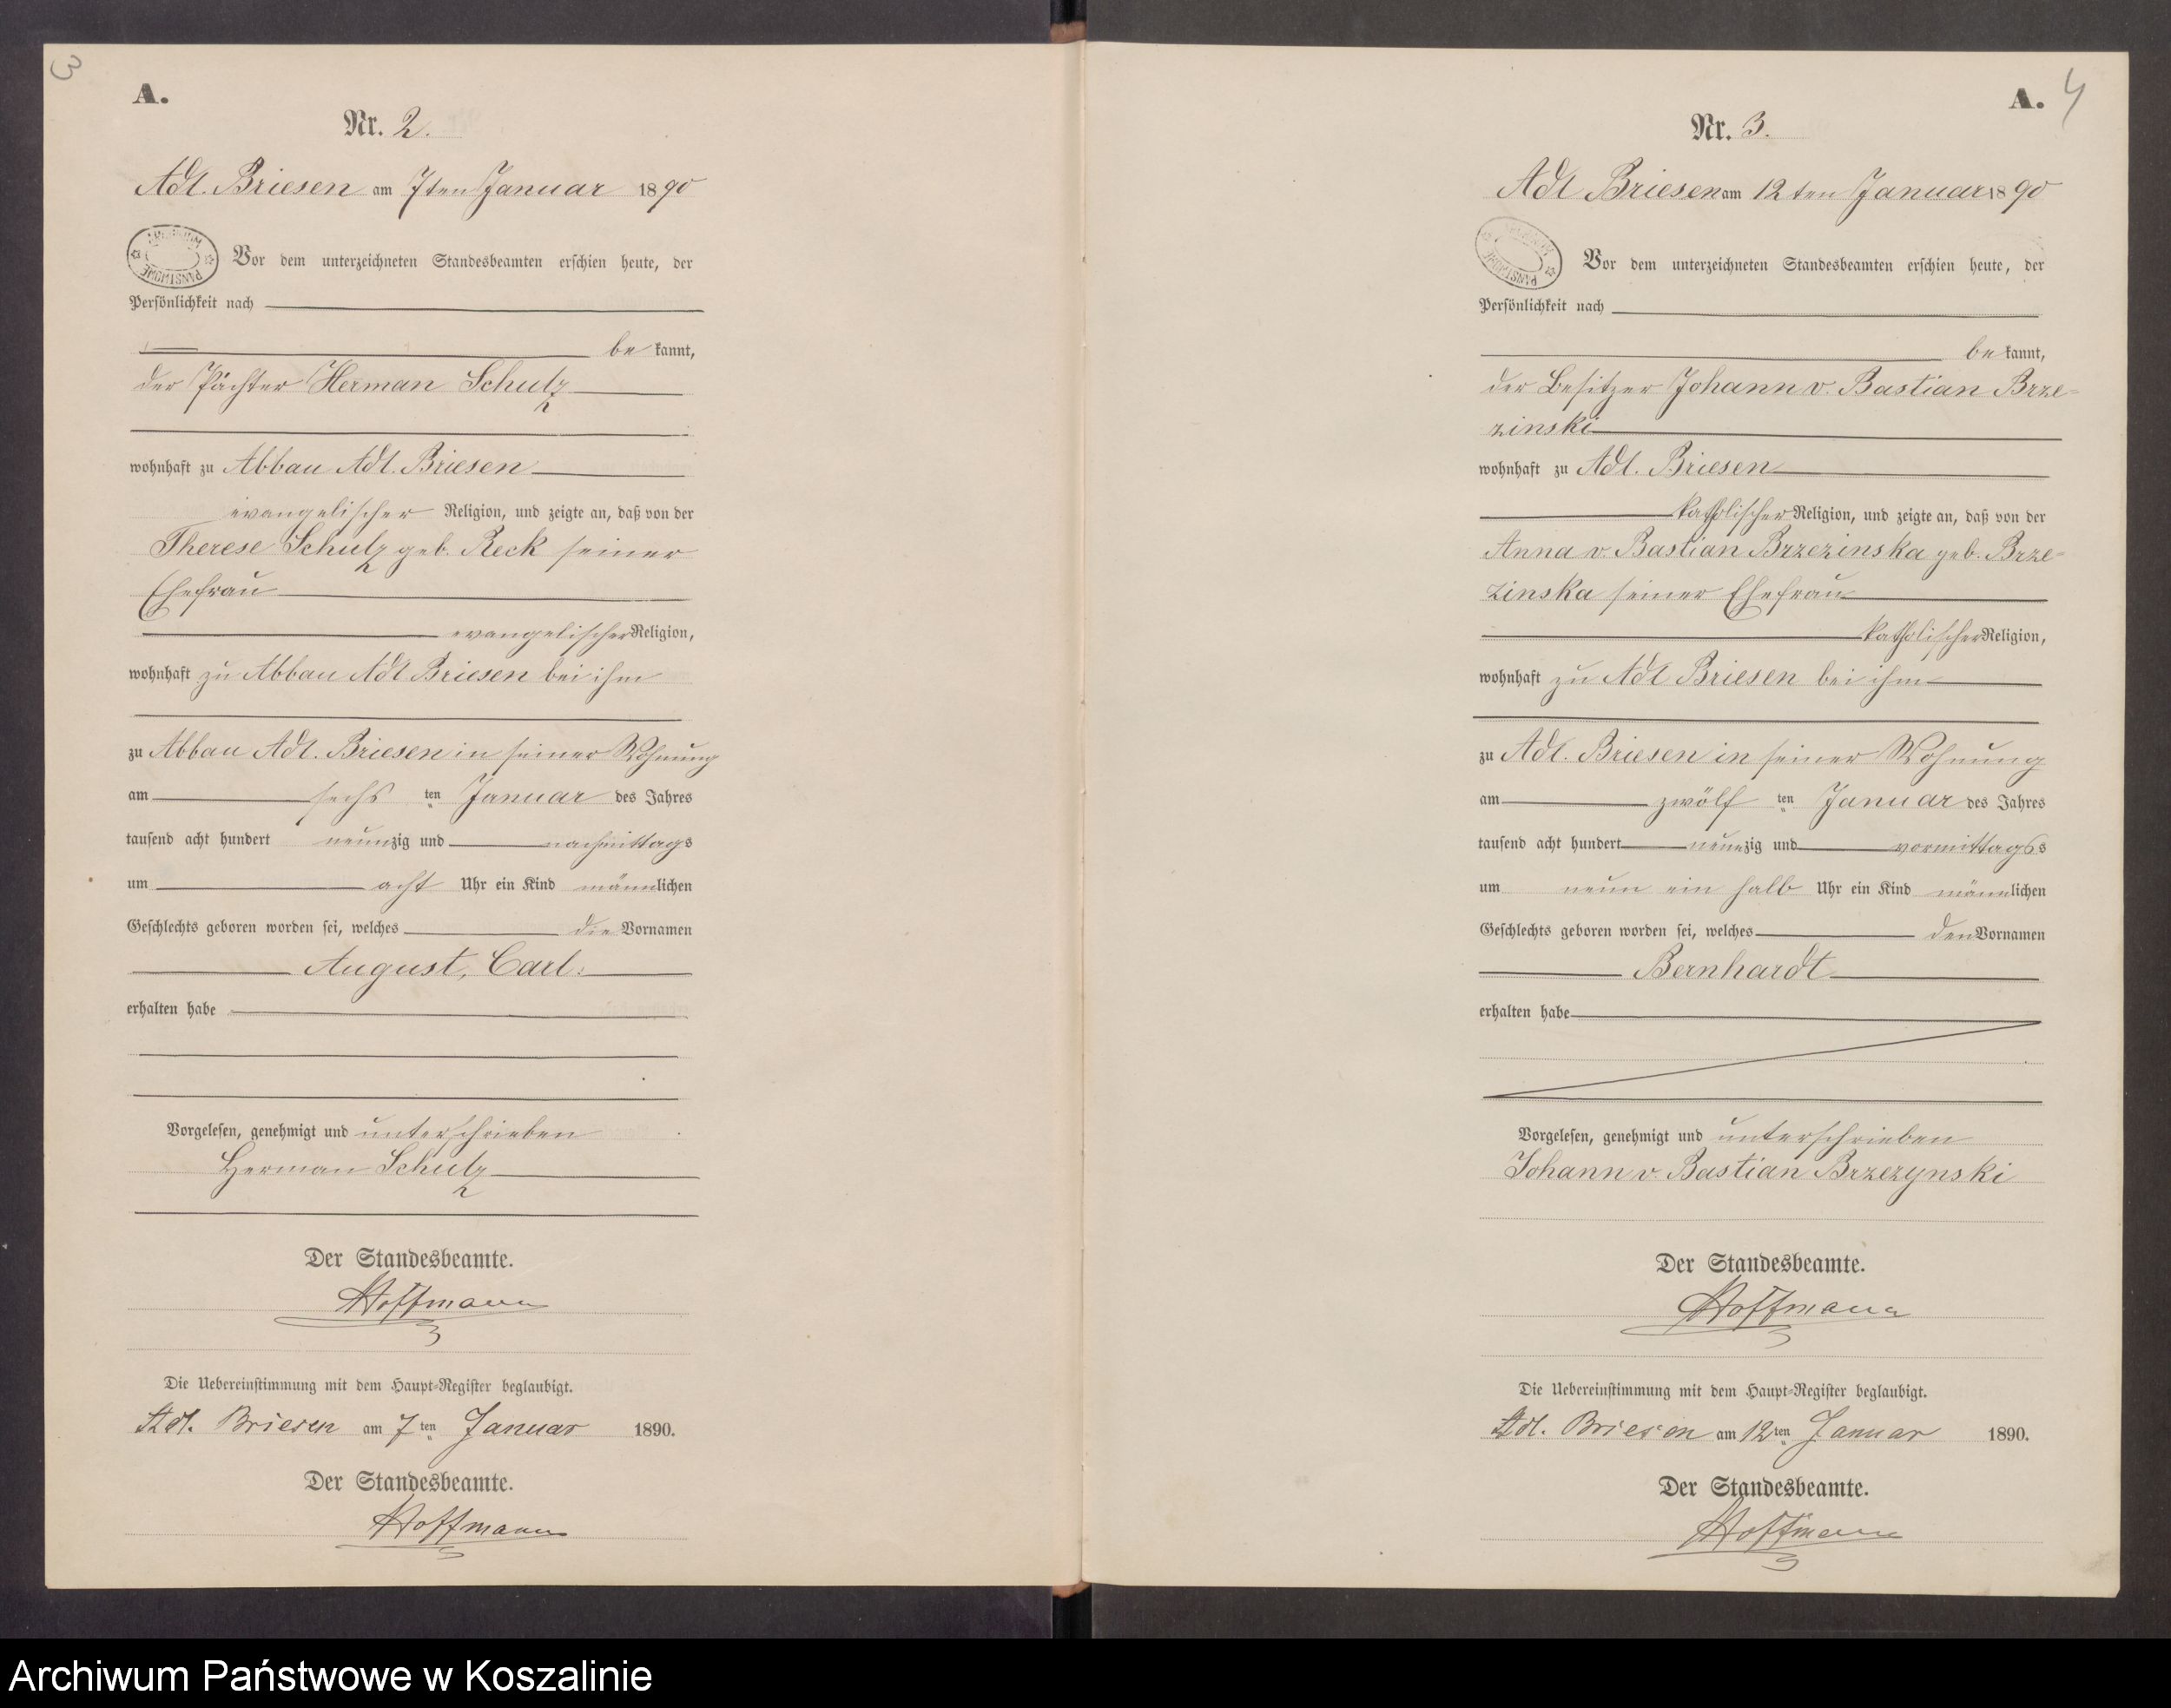 3
A.
Nr. 2.
Adl. Briesen am 7ten Januar 1890
Vor dem unterzeichneten Standesbeamten erschien heute, der
Persönlichkeit nach
bekannt,
der Pächter Herman Schulz
wohnhaft zu Abbau Adl. Briesen
evangelischer Religion, und zeigte an, daß von der
Therese Schulz geb. Reck seiner
Ehefrau
evangelischer Religion,
wohnhaft zu Abbau Adl Briesen bei ihm
zu Abbau Adl. Briesen in seiner Wohnung
am sechs ten Januar des Jahres
tausend acht hundert neunzig und nachmittags
um acht Uhr ein Kind männlichen
Geschlechts geboren worden sei, welches die Vornamen
August, Carl.
erhalten habe
Vorgelesen, genehmigt und unterschrieben
Herman Schulz
Der Standesbeamte.
Hoffmann
Die Uebereinstimmung mit dem Haupt-Register beglaubigt.
Adl. Briesen am 7ten Januar 1890.
Der Standesbeamte.
Hoffmann
A. 4
Nr. 3.
Adl Briesen am 12ten Januar 1890
Vor dem unterzeichneten Standesbeamten erschien heute, der
Persönlichkeit nach
bekannt,
der Besitzer Johann v. Bastian Brze-
zinski
wohnhaft zu Adl. Briesen
katholischer Religion, und zeigte an, daß von der
Anna v. Bastian Brzezinska geb. Brze-
zinska seiner Ehefrau
katholischer Religion,
wohnhaft zu Adl Briesen bei ihm
zu Adl. Briesen in seiner Wohnung
am zwölf ten Januar des Jahres
tausend acht hundert neunzig und vormittags
um neun ein halb Uhr ein Kind männlichen
Geschlechts geboren worden sei, welches den Vornamen
Bernhardt
erhalten habe
Vorgelesen, genehmigt und unterschrieben
Johann v. Bastian Brzezynski
Der Standesbeamte.
Hoffmann
Die Uebereinstimmung mit dem Haupt-Register beglaubigt.
Adl. Briesen am 12ten Januar 1890.
Der Standesbeamte.
Hoffmann
Archiwum Państwowe w Koszalinie